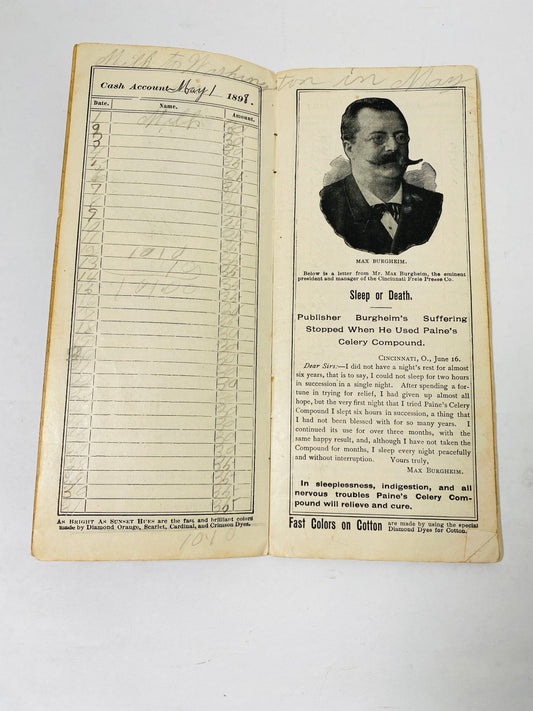 Milk to Washington in May
Cash Account May 1 1898.
Date. Name. Amount.
Milk
As Bright As Sunset Hues are the fast and brilliant colors
made by Diamond Orange, Scarlet, Cardinal, and Crimson Dyes.
MAX BURGHEIM.
Below is a letter from Mr. Max Burgheim, the eminent
president and manager of the Cincinnati Freie Presse Co.
Sleep or Death.
Publisher Burgheim's Suffering
Stopped When He Used Paine's
Celery Compound.
Cincinnati, O., June 16.
Dear Sirs:—I did not have a night's rest for almost
six years, that is to say, I could not sleep for two hours
in succession in a single night. After spending a for-
tune in trying for relief, I had given up almost all
hope, but the very first night that I tried Paine's Celery
Compound I slept six hours in succession, a thing that
I had not been blessed with for so many years. I
continued its use for over three months, with the
same happy result, and, although I have not taken the
Compound for months, I sleep every night peacefully
and without interruption. Yours truly,
Max Burgheim.
In sleeplessness, indigestion, and all
nervous troubles Paine's Celery Com-
pound will relieve and cure.
Fast Colors on Cotton are made by using the special
Diamond Dyes for Cotton.